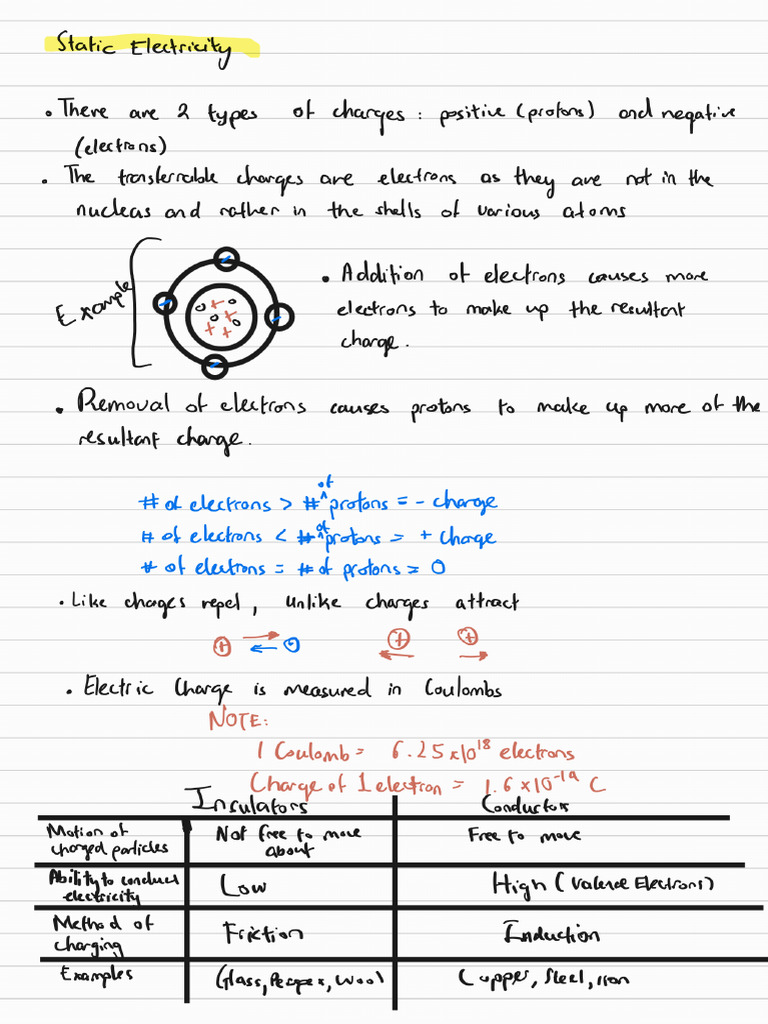 Static Electricity
• There are 2 types of charges: positive (protons) and negative
(electrons)
• The transferrable charges are electrons as they are not in the
nucleas and rather in the shells of various atoms
Example
• Addition of electrons causes more
electrons to make up the resultant
charge.
• Removal of electrons causes protons to make up more of the
resultant charge.
# of electrons > # of protons = - charge
# of electrons < # of protons = + charge
# of electrons = # of protons = 0
• Like charges repel, unlike charges attract
• Electric Charge is measured in Coulombs
NOTE:
1 Coulomb = 6.25 x10^18 electrons
Charge of 1 electron = 1.6 x10^-19 C
Insulators Conductors
Motion of charged particles Not free to move about Free to move
Ability to conduct electricity Low High (Valence Electrons)
Method of charging Friction Induction
Examples Glass, Perspex, Wool Copper, Steel, Iron